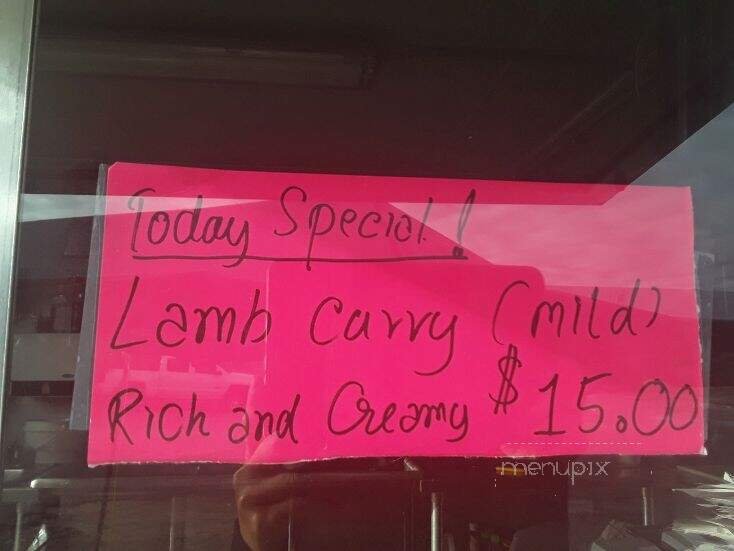 Today Special!
Lamb Curry (mild)
Rich and Creamy $15.00
menupix